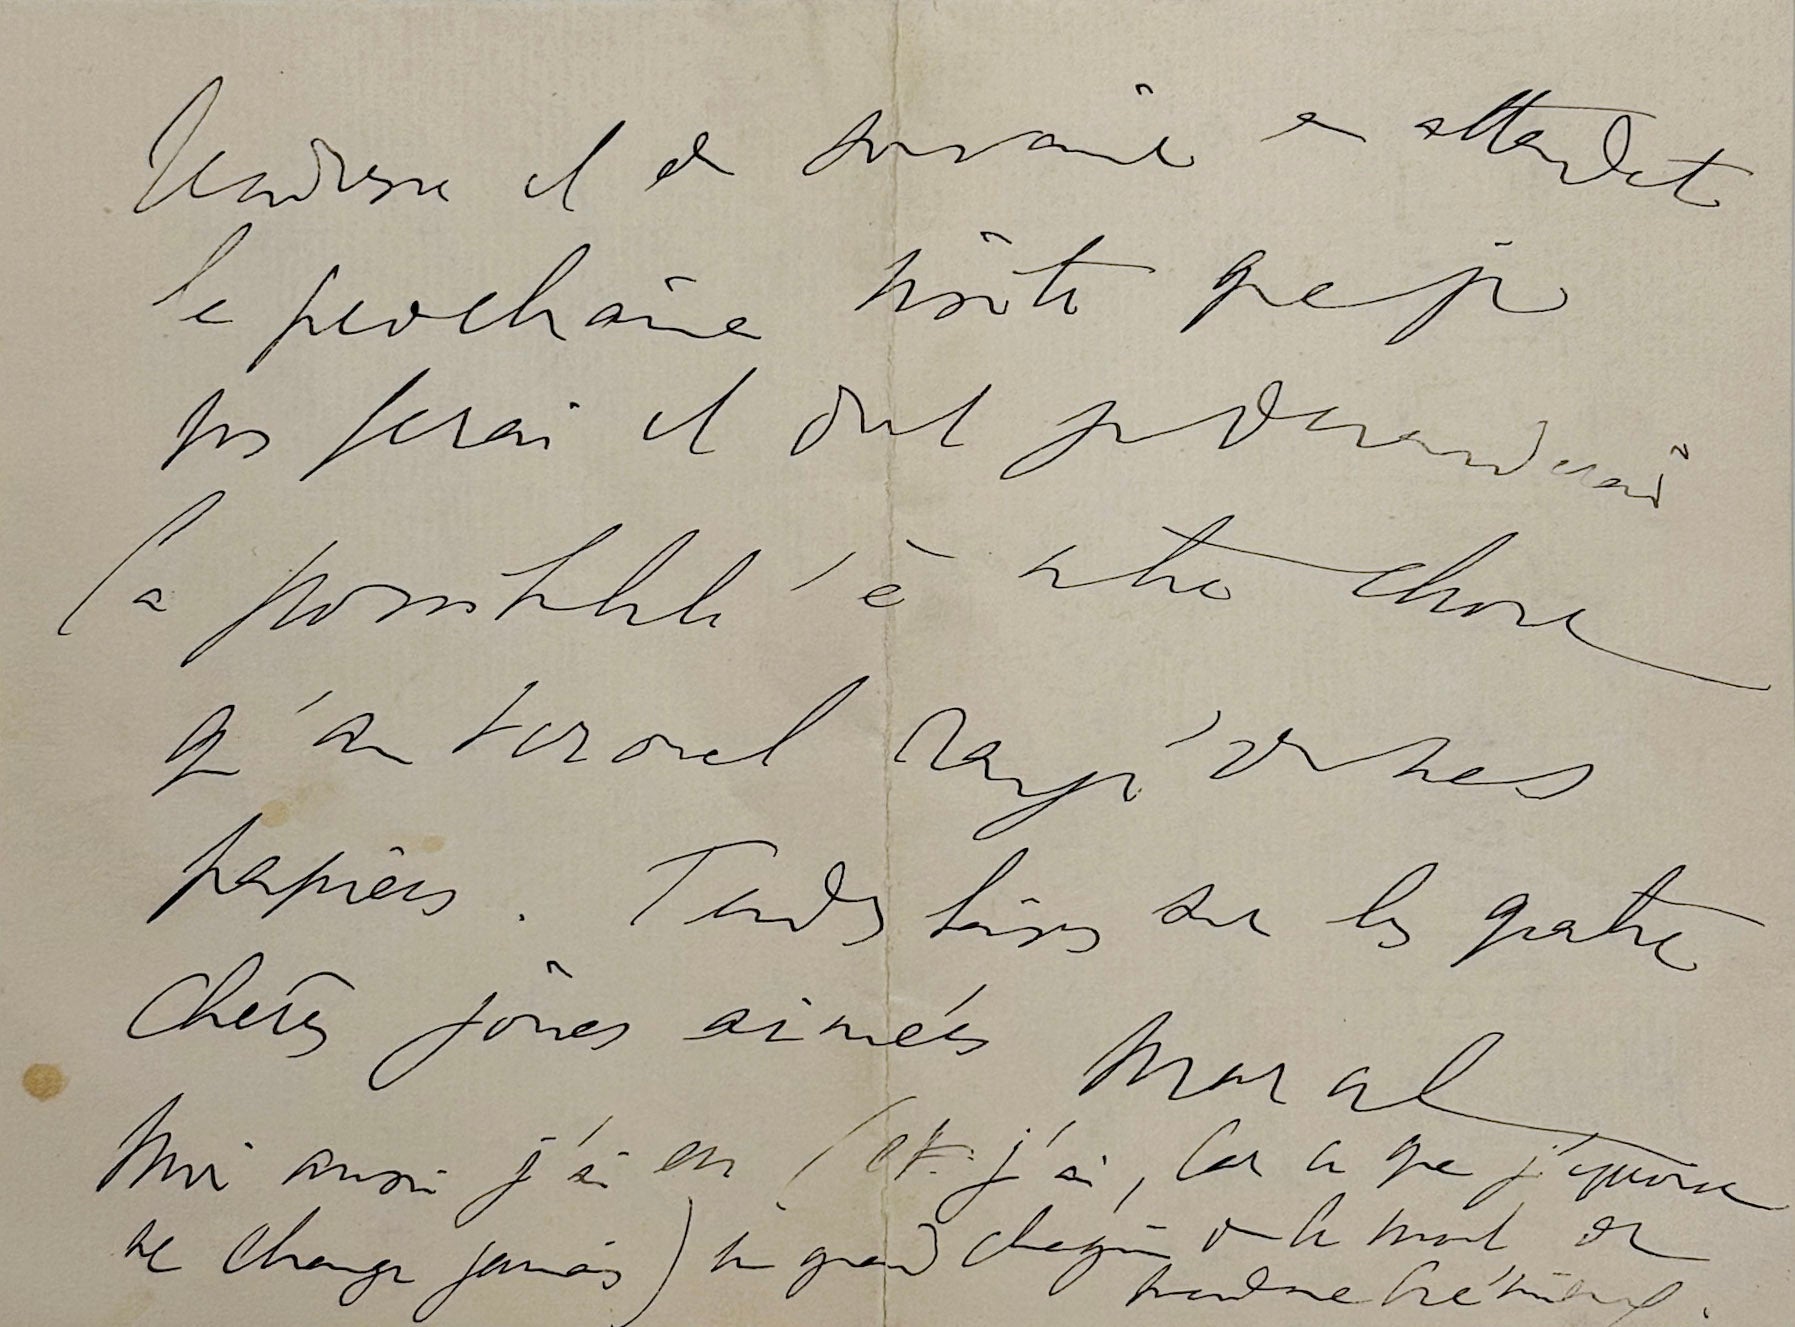 tendresse et de souvenir en attendant
la prochaine visite que je
vous ferai et dont je demanderai
la possibilité à autre chose
qu'au Véronal rangé de mes
papiers. Tendres baisers sur les quatre
chères joues aimées
Marcel
Moi aussi j'ai eu (et j'ai, car ce que j'éprouve
ne change jamais) un grand chagrin de la mort de
Madame